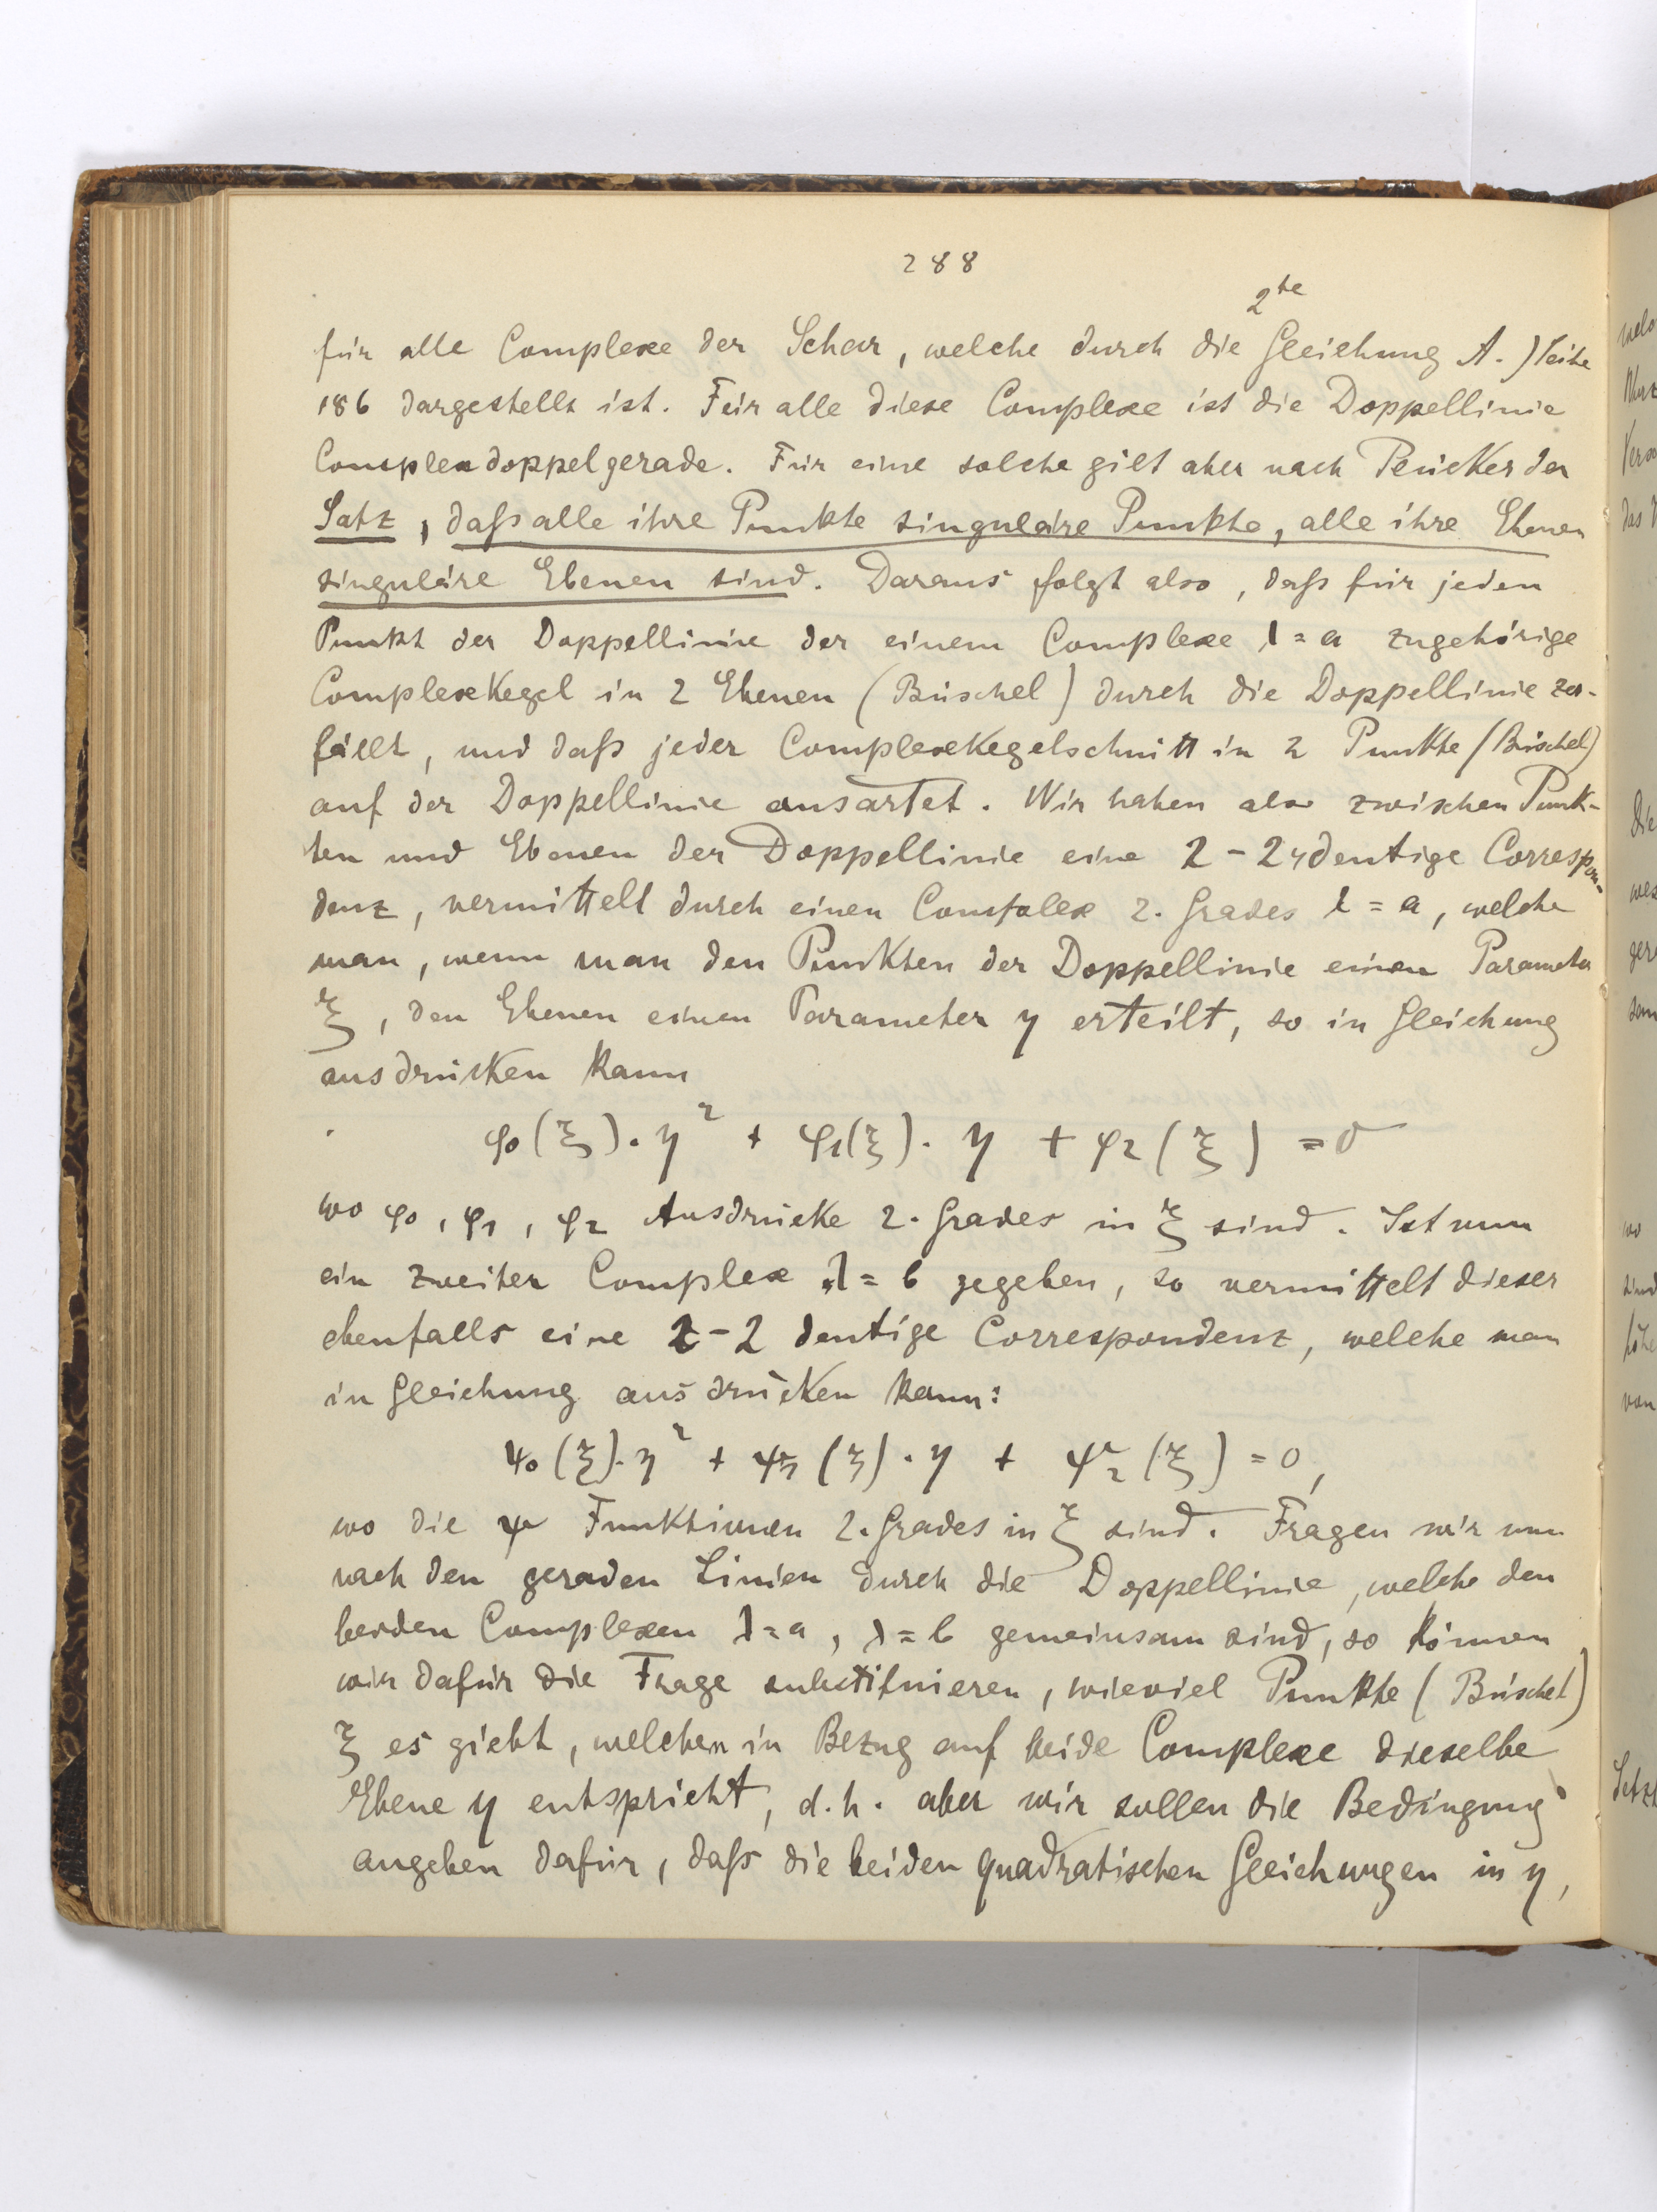 288
2te
für alle Complexe der Schar, welche durch die Gleichung A.) Seite
186 dargestellt ist. Für alle diese Complexe ist die Doppellinie
Complexdoppelgerade. Für eine solche gilt aber nach Plücker der
Satz, daß alle ihre Punkte singuläre Punkte, alle ihre Ebenen
singuläre Ebenen sind. Daraus folgt also, daß für jeden
Punkt der Doppellinie der einem Complexe λ = a zugehörige
Complexkegel in 2 Ebenen (Büschel) durch die Doppellinie zer-
fällt, und daß jeder Complexkegelschnitt in 2 Punkte (Büschel)
auf der Doppellinie ausartet. Wir haben also zwischen Punk-
ten und Ebenen der Doppellinie eine 2-2 deutige Correspon-
denz, vermittelt durch einen Complex 2. Grades λ = a, welche
man, wenn man den Punkten der Doppellinie einen Parameter
ξ, den Ebenen einen Parameter η erteilt, so in Gleichung
ausdrücken kann
φ0(ξ).η² + φ1(ξ).η + φ2(ξ) = 0
wo φ0, φ1, φ2 Ausdrücke 2. Grades in ξ sind. Ist nun
ein zweiter Complex λ = b gegeben, so vermittelt dieser
ebenfalls eine 2-2 deutige Correspondenz, welche man
in Gleichung ausdrücken kann:
ψ0(ξ).η² + ψ1(ξ).η + ψ2(ξ) = 0,
wo die ψ Funktionen 2. Grades in ξ sind. Fragen wir nun
nach den geraden Linien durch die Doppellinie, welche den
beiden Complexen λ = a, λ = b gemeinsam sind, so können
wir dafür die Frage substituieren, wieviel Punkte (Büschel)
ξ es giebt, welchen in Bezug auf beide Complexe dieselbe
Ebene η entspricht, d.h. aber wir sollen die Bedingung
angeben dafür, daß die beiden quadratischen Gleichungen in η,